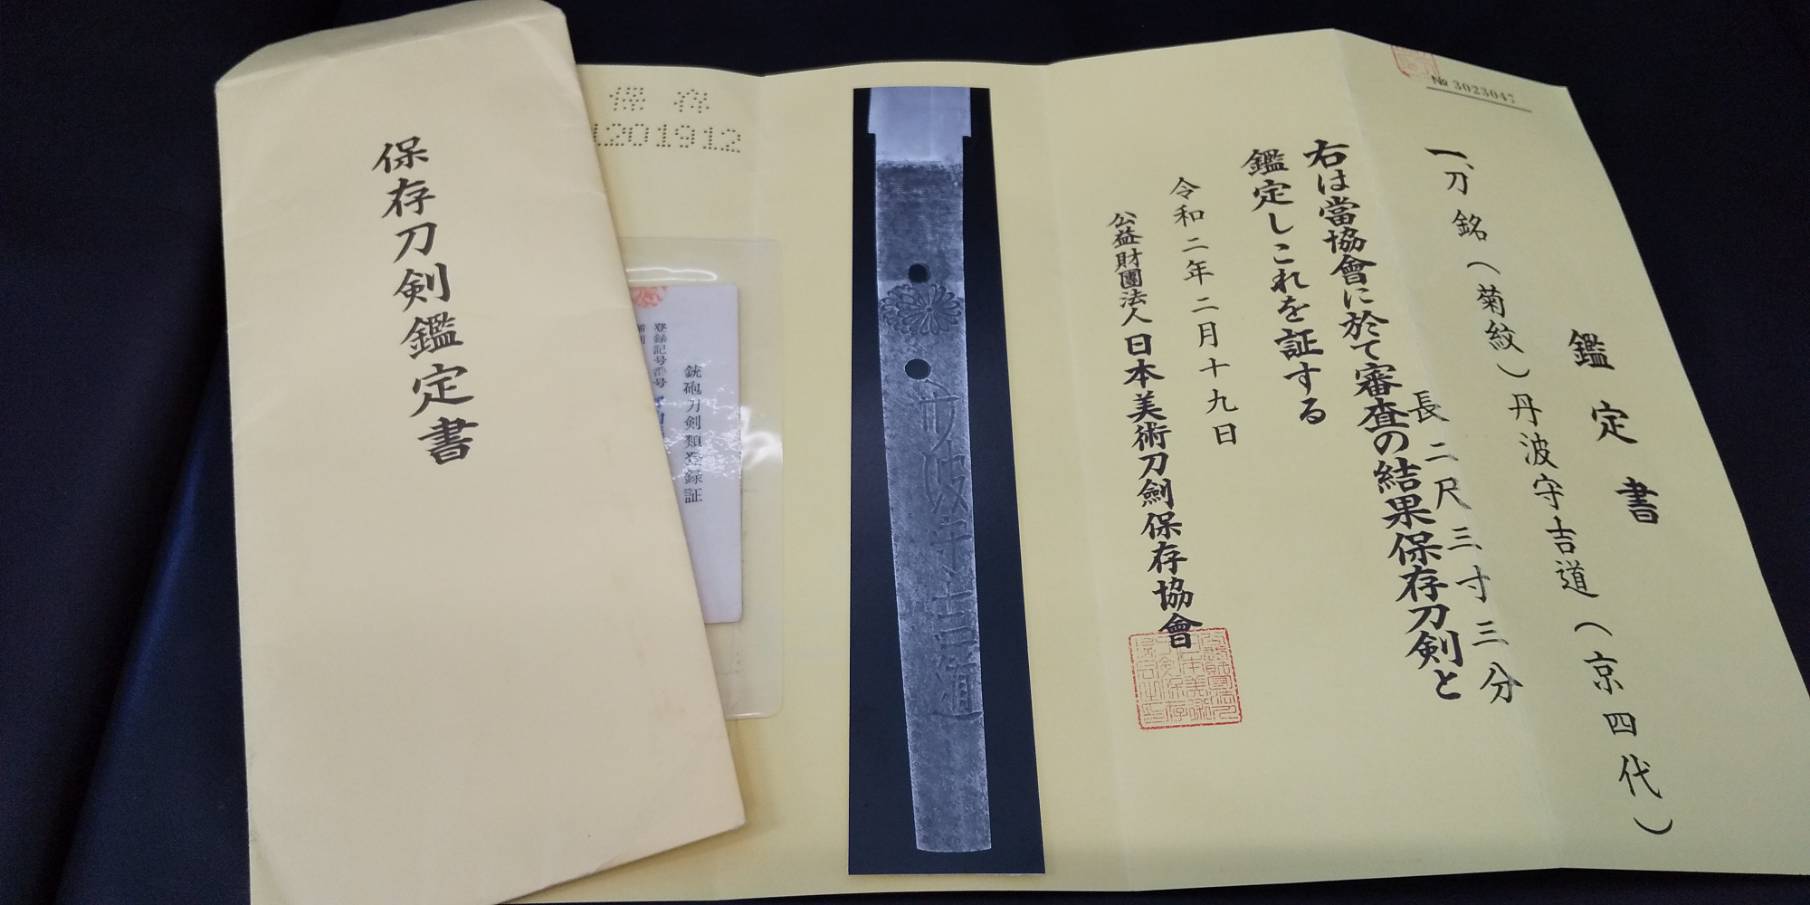 保存刀剣鑑定書
保存
1201912
銃砲刀剣類登録証
登録記号番号
丹波守吉道
№ 3023047
鑑定書
一、刀 銘（菊紋）丹波守吉道（京四代）
長二尺三寸三分
右は當協會に於て審査の結果保存刀剣と
鑑定しこれを証する
令和二年二月十九日
公益財團法人日本美術刀劍保存協會